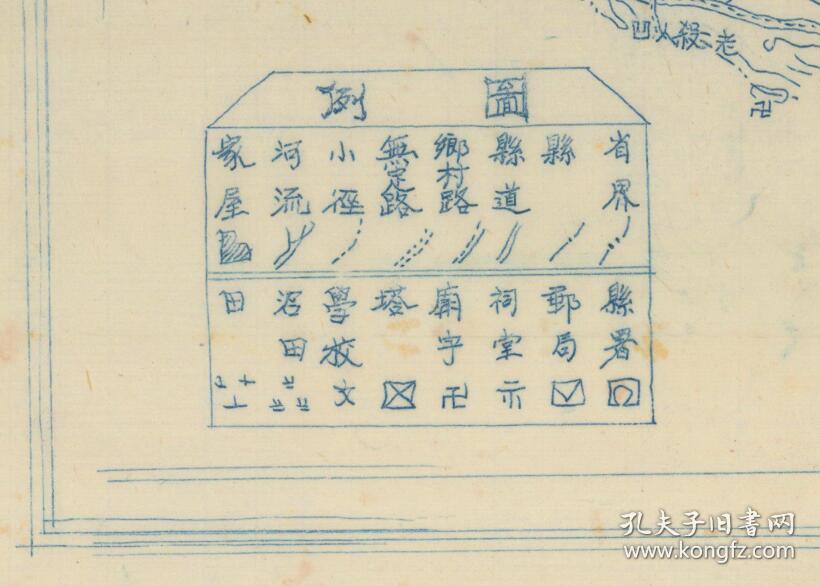 老殺人凹
卍
圖例
省界
縣
縣道
鄉村路
無定路
小徑
河流
家屋
縣署
郵局
祠堂
廟宇
卍
塔
學校
文
沼田
田
孔夫子旧书网
www.kongfz.com